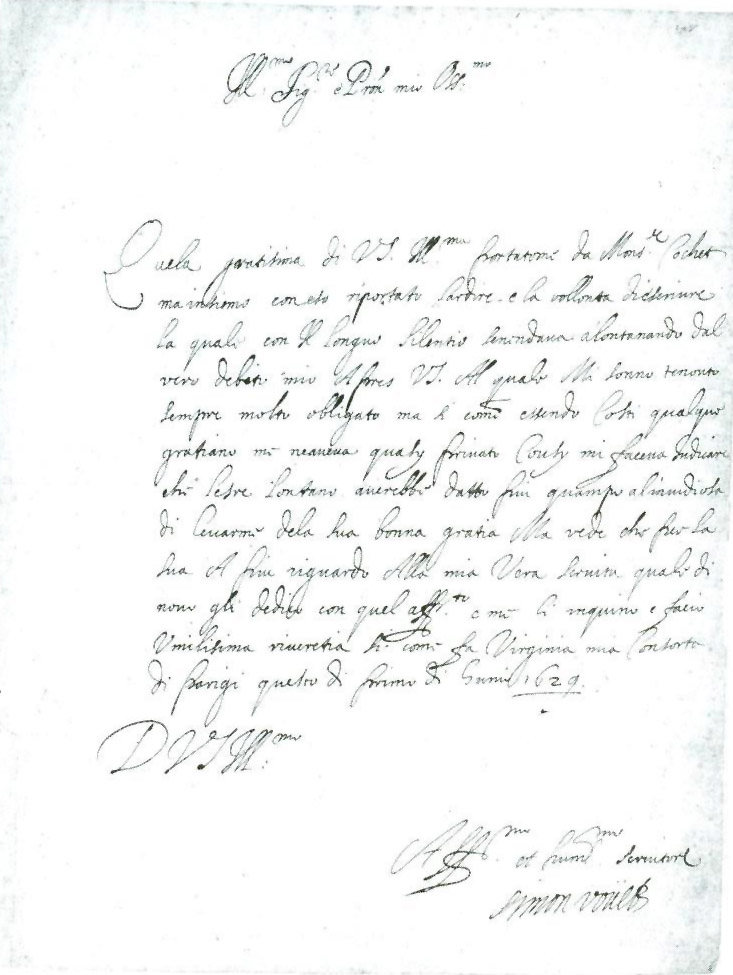 Ill.mo Sig.re e Pron mio Oss.mo
Quela gratisima di VS. Ill.ma portatome da Mons.r Cochet
ma insiemo con eso riportato lardire e la vollonta discriuire
la quale con Il longuo silentio senendava alontanando dal
vero debito mio Apres VS. Al quale Mi sonno tenouto
sempre molto obligato ma si come essendo Costi qualque
gratiano me neaueua privato Cousy mi faceua Iudicare
che lesre lontano auerebbe datto piu al inuidiosa
di leuarme dela sua bonna gratia Ma vede che per la
sua A piu riguardo Alla mia Vera seruitu quale di
nouo gli dedico con quel aff.to e me li inquino e facio
Vmilisima riueretia si come fa Virginia mia Consorte
di Parigi questo di primo di Iunio 1629.
D VS Ill.ma
Aff.mo et hum.mo seruitore
simon voüet